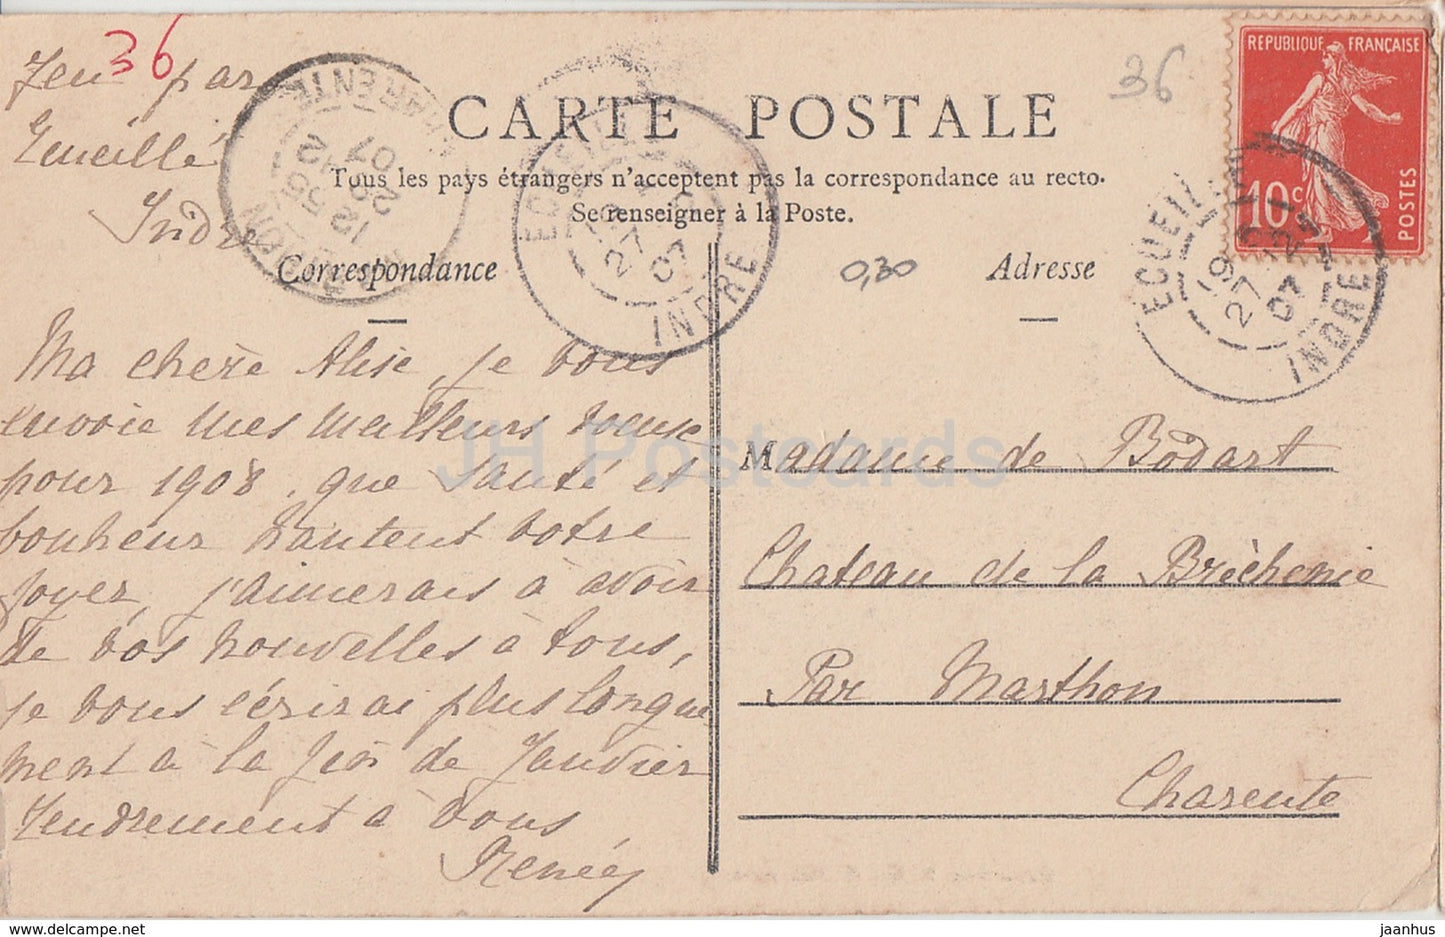 36
36
Jeu par
Ecueillé
Indre
CARTE POSTALE
Tous les pays étrangers n'acceptent pas la correspondance au recto.
Se renseigner à la Poste.
Correspondance
0,30
Adresse
REPUBLIQUE FRANÇAISE
10c
POSTES
ECUEILLE
27
07
INDRE
ECUEILLE
19
27
07
INDRE
CHARENTE
12
55
28
12
07
Ma chère Alise, je vous
envoie mes meilleurs voeux
pour 1908, que santé et
bonheur hantent votre
foyer, j'aimerais à avoir
de vos nouvelles à tous,
je vous écrirai plus longue
ment à la fin de Janvier
Tendrement à vous
Renée
Madame de Bodart
Chateau de la Brèchenie
Par Marthon
Charente
JH Postcards
delcampe.net
jaanhus